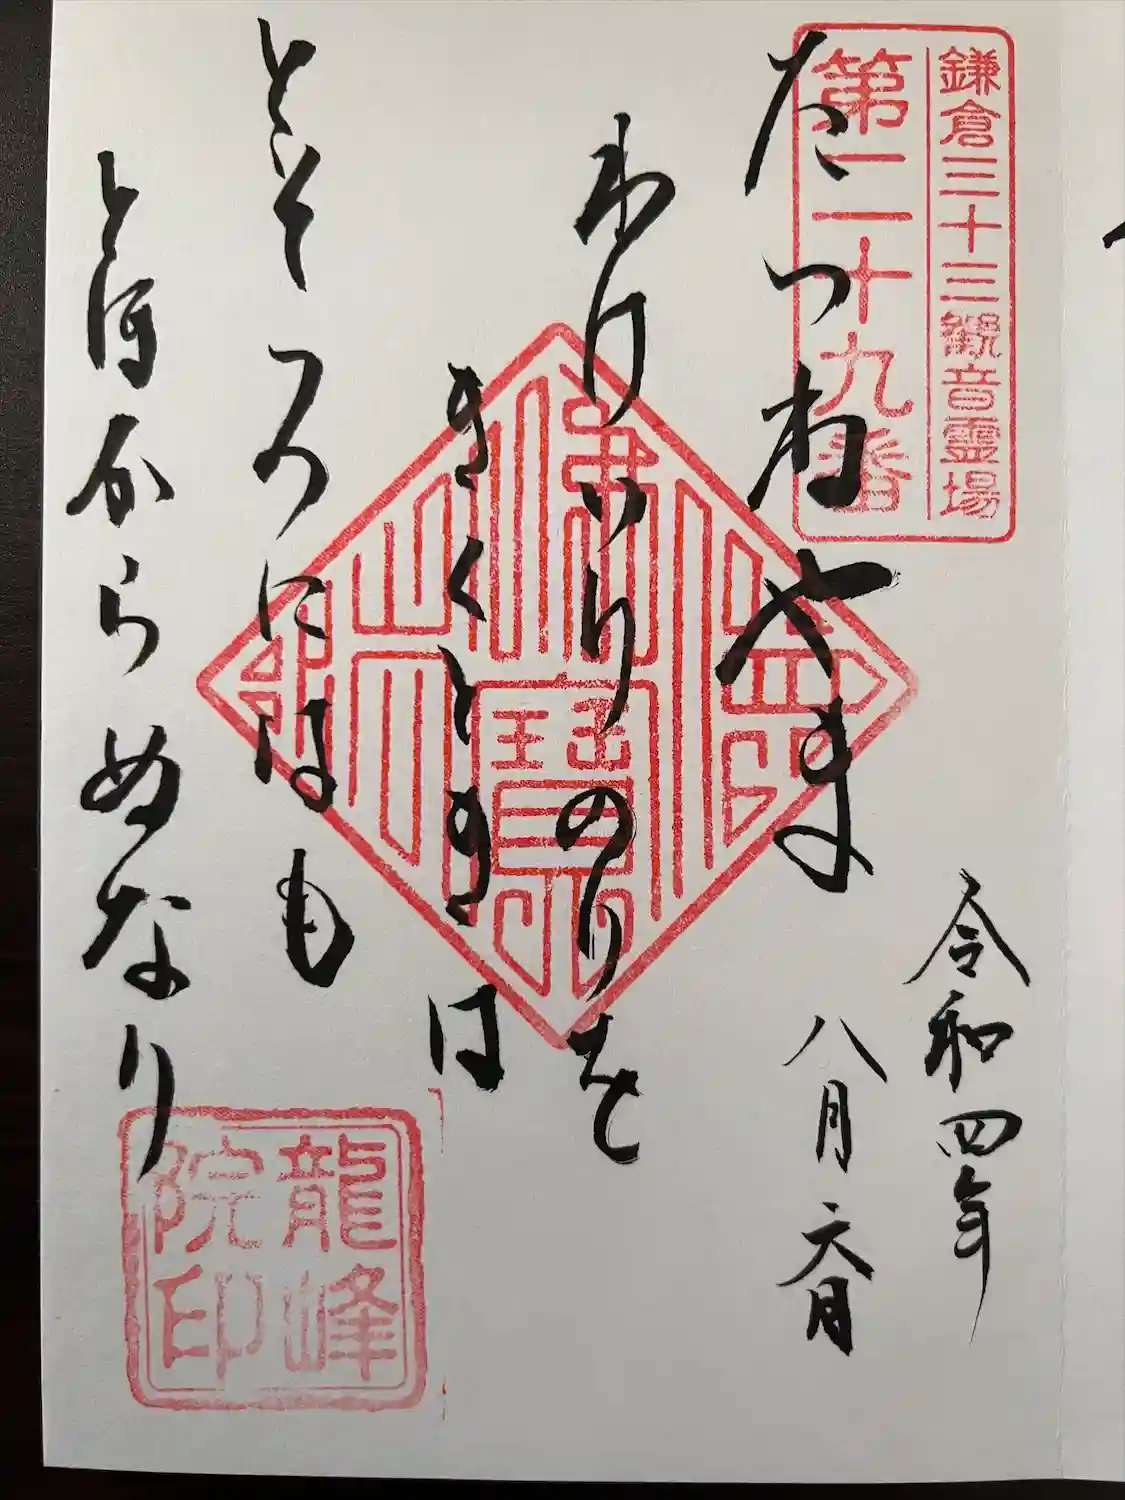 鎌倉三十三観音霊場
第二十九番
令和四年
八月六日
たつねやま
わけいりのりを
きくときは
とそつのにはも
とほからぬなり
龍峰
院印